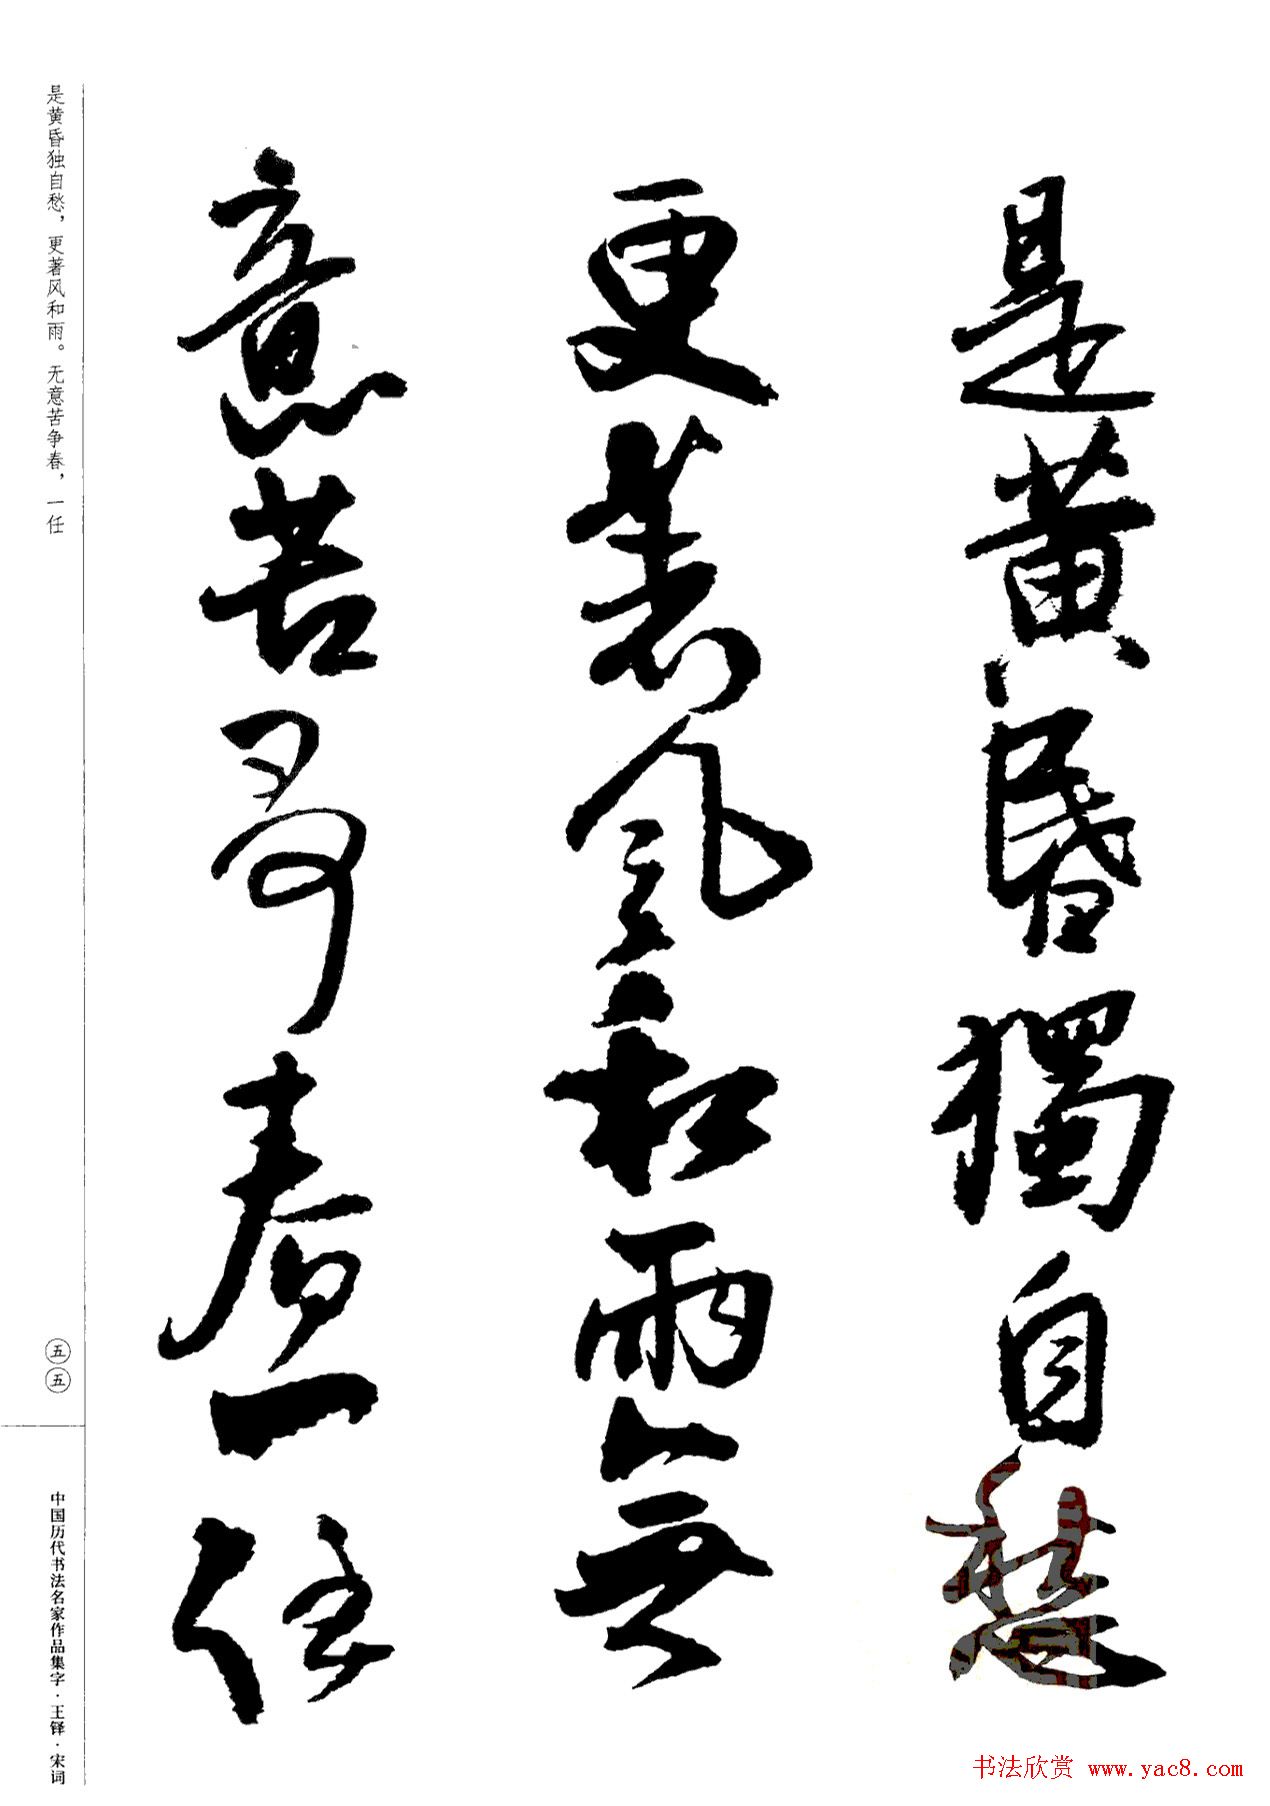 是黄昏獨自愁
更著風和雨無
意苦爭春一任
是黄昏独自愁，更著风和雨。无意苦争春，一任
五五
中国历代书法名家作品集字·王铎·宋词
书法欣赏 www.yac8.com